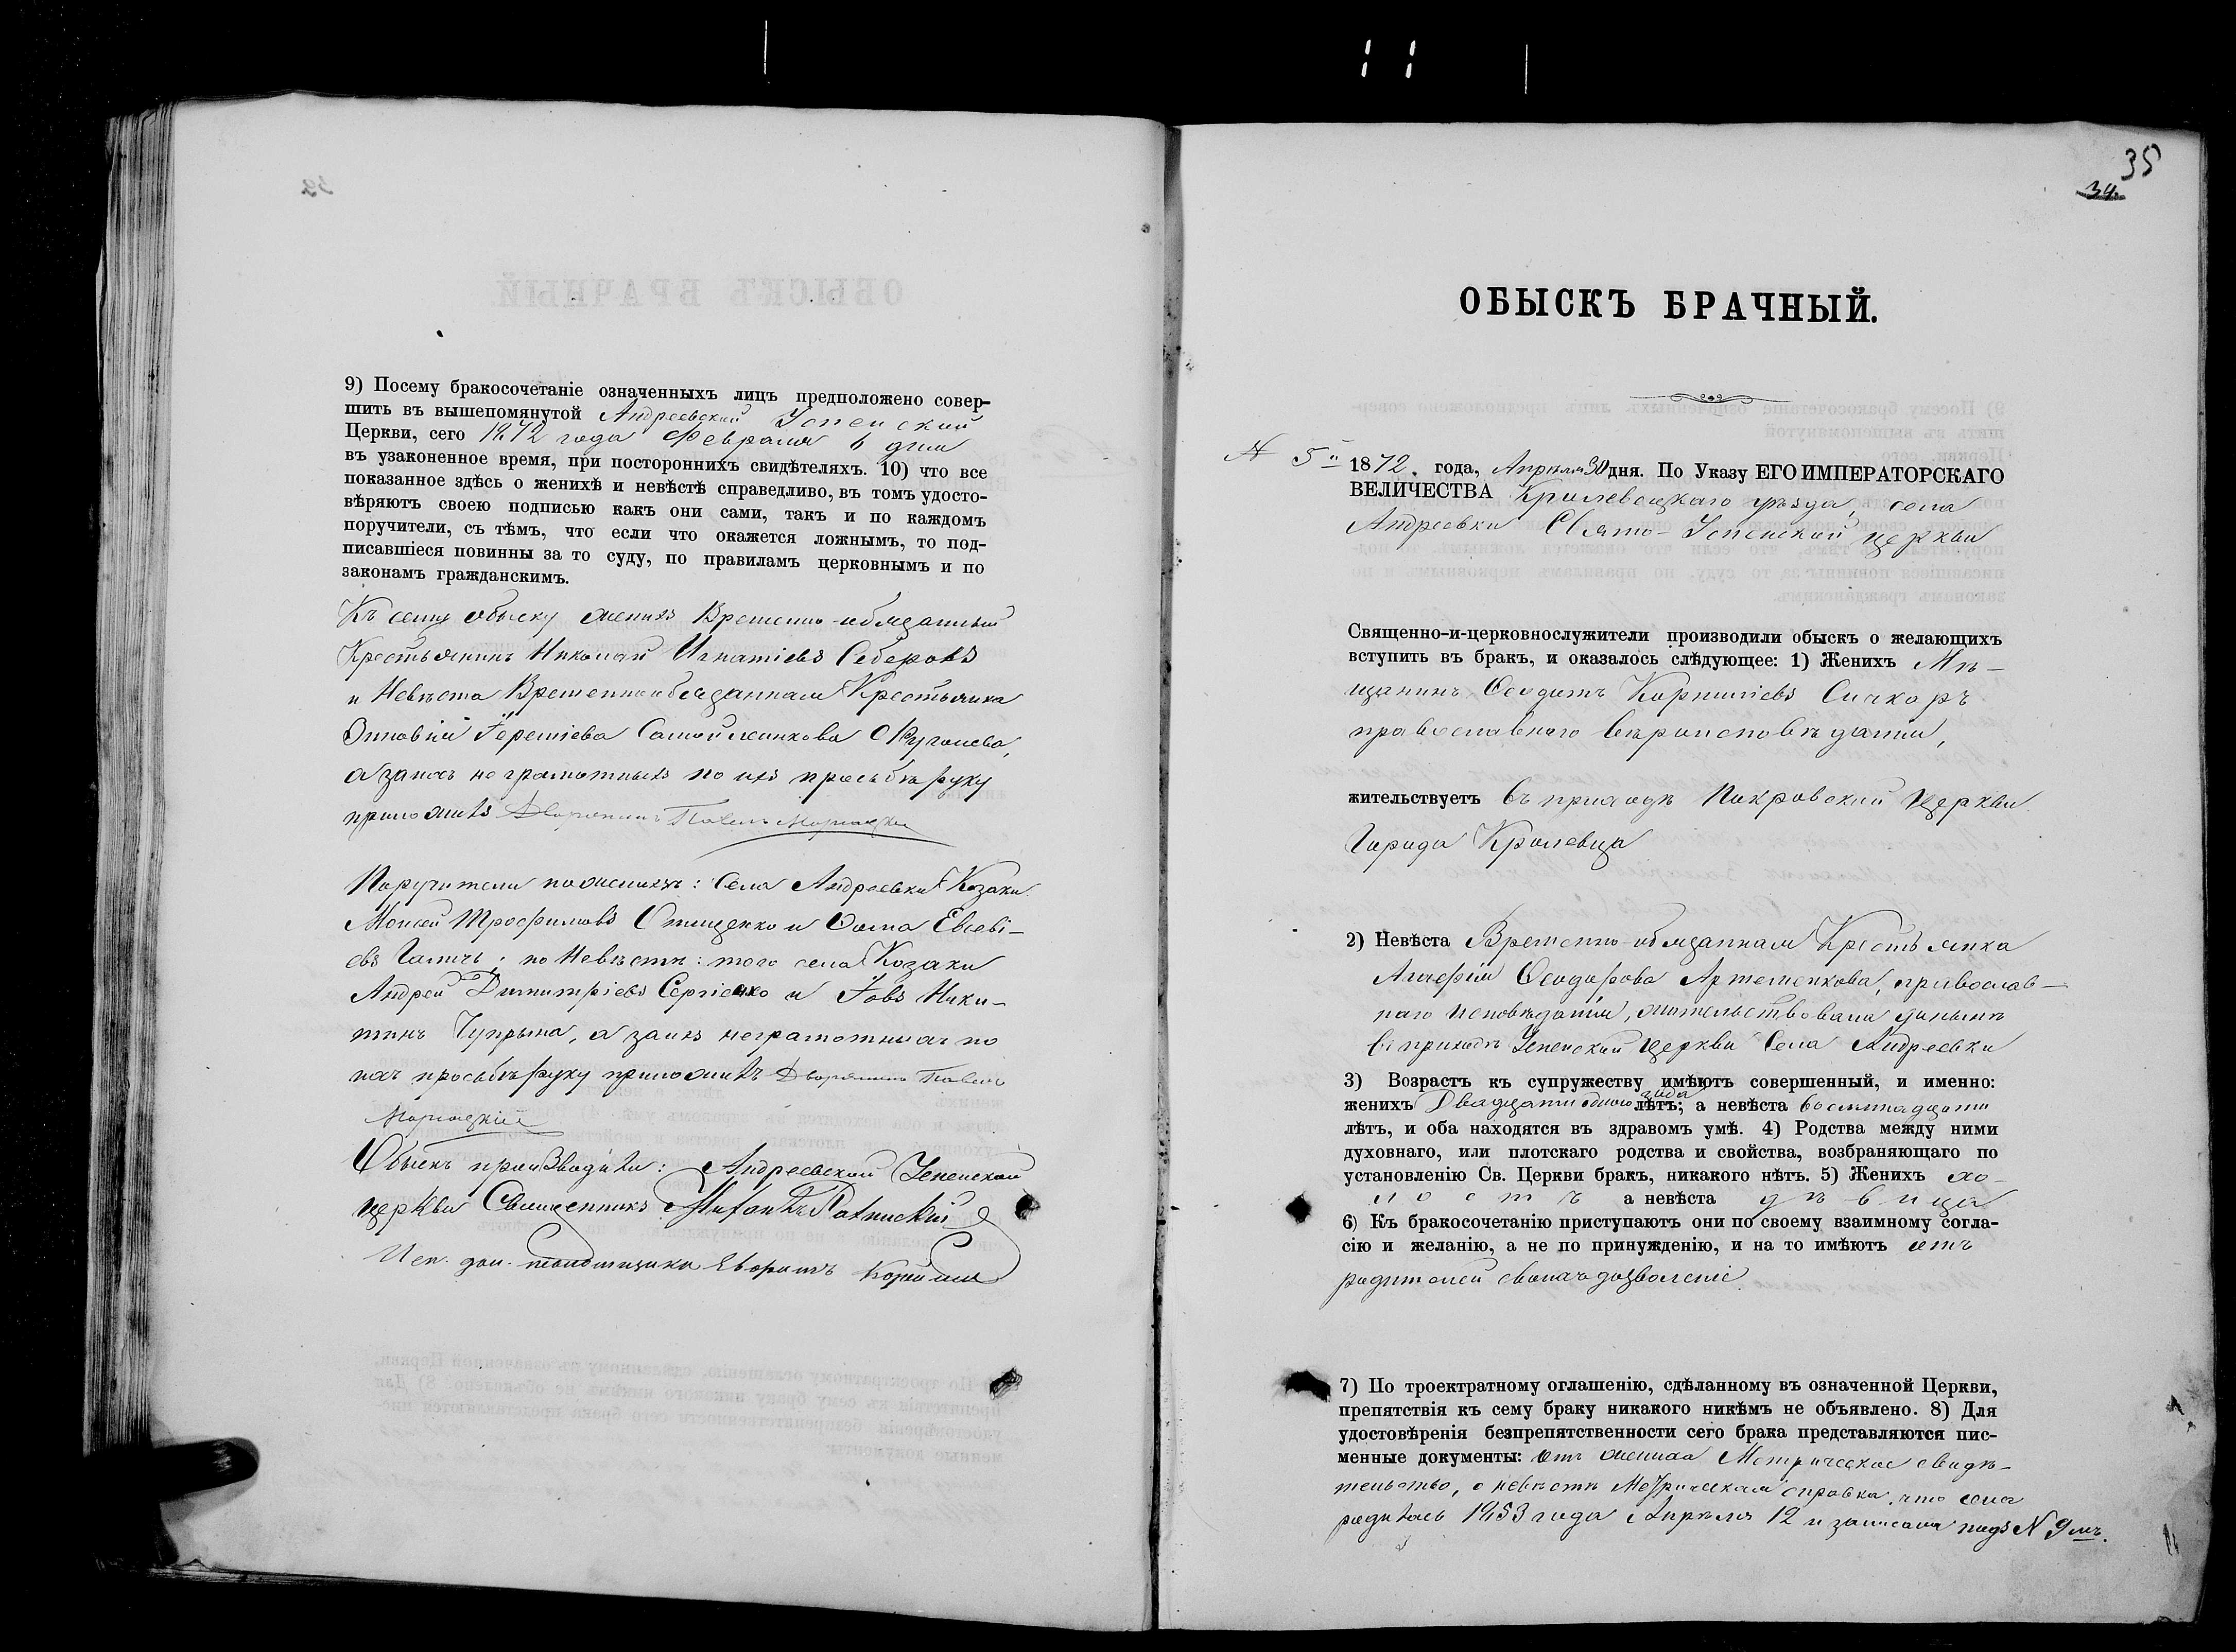 9) Посему бракосочетаніе означенныхъ лицъ предположено совер-
шить въ вышепомянутой Андреевской Успенской
Церкви, сего 1872 года Февраля 6 дня
въ узаконенное время, при постороннихъ свидѣтеляхъ. 10) что все
показанное здѣсь о женихѣ и невѣстѣ справедливо, въ томъ удосто-
вѣряютъ своею подписью какъ они сами, такъ и по каждомъ
поручители, съ тѣмъ, что если что окажется ложнымъ, то под-
писавшіеся повинны за то суду, по правиламъ церковнымъ и по
законамъ гражданскимъ.
Къ сему обыску женихъ Временно-обязанный
Крестьянинъ Николай Игнатіевъ
и Невѣста Временнообязанная Крестьянка
Самойленкова
а за нихъ неграмотныхъ по ихъ просьбѣ руку
приложилъ Дворянинъ Павелъ
Поручители по женихѣ: Села Андреевки Козаки
Моисей Трофимовъ Онищенко и Ѳома Евсеві-
евъ Галичъ; по Невѣстѣ: того села Козаки
Андрей Димитріевъ Сергіенко и Іовъ Ники-
тинъ Чупрына, а за ихъ неграмотныхъ по
ихъ просьбѣ руку приложилъ Дворянинъ Павелъ
Обыскъ производили: Андреевской Успенской
церкви Священникъ
Исп. дол. псаломщика
35
34.
ОБЫСКЪ БРАЧНЫЙ.
N 5й 1872. года, Апрѣля 30 дня. По Указу ЕГО ИМПЕРАТОРСКАГО
ВЕЛИЧЕСТВА Кролевецкаго уѣзда, села
Андреевки Свято-Успенской церкви
Священно-и-церковнослужители производили обыскъ о желающихъ
вступить въ бракъ, и оказалось слѣдующее: 1) Женихъ Мѣ-
щанинъ Ѳеодотъ Корниліевъ Сичкоръ
православнаго вѣроисповѣданія,
жительствуетъ въ приходѣ Покровской Церкви
Города Кролевца
2) Невѣста Временно-обязанная Крестьянка
Агаѳія Ѳеодорова Артеменкова, православ-
наго исповѣданія, жительствовала донынѣ
въ приходѣ Успенской Церкви Села Андреевки
3) Возрастъ къ супружеству имѣютъ совершенный, и именно:
женихъ Двадцати одного года лѣтъ; а невѣста восемнадцати
лѣтъ, и оба находятся въ здравомъ умѣ. 4) Родства между ними
духовнаго, или плотскаго родства и свойства, возбраняющаго по
установленію Св. Церкви бракъ, никакого нѣтъ. 5) Женихъ хо-
лостъ а невѣста дѣвица
6) Къ бракосочетанію приступаютъ они по своему взаимному согла-
сію и желанію, а не по принужденію, и на то имѣютъ отъ
родителей своихъ дозволеніе.
7) По троектратному оглашенію, сдѣланному въ означенной Церкви,
препятствія къ сему браку никакого никѣмъ не объявлено. 8) Для
удостовѣренія безпрепятственности сего брака представляются пис-
менные документы: отъ жениха Метрическое свидѣ-
тельство, о невѣстѣ Метрическая справка, что она
родилась 1853 года Апрѣля 12 и записана подъ N 9мъ.